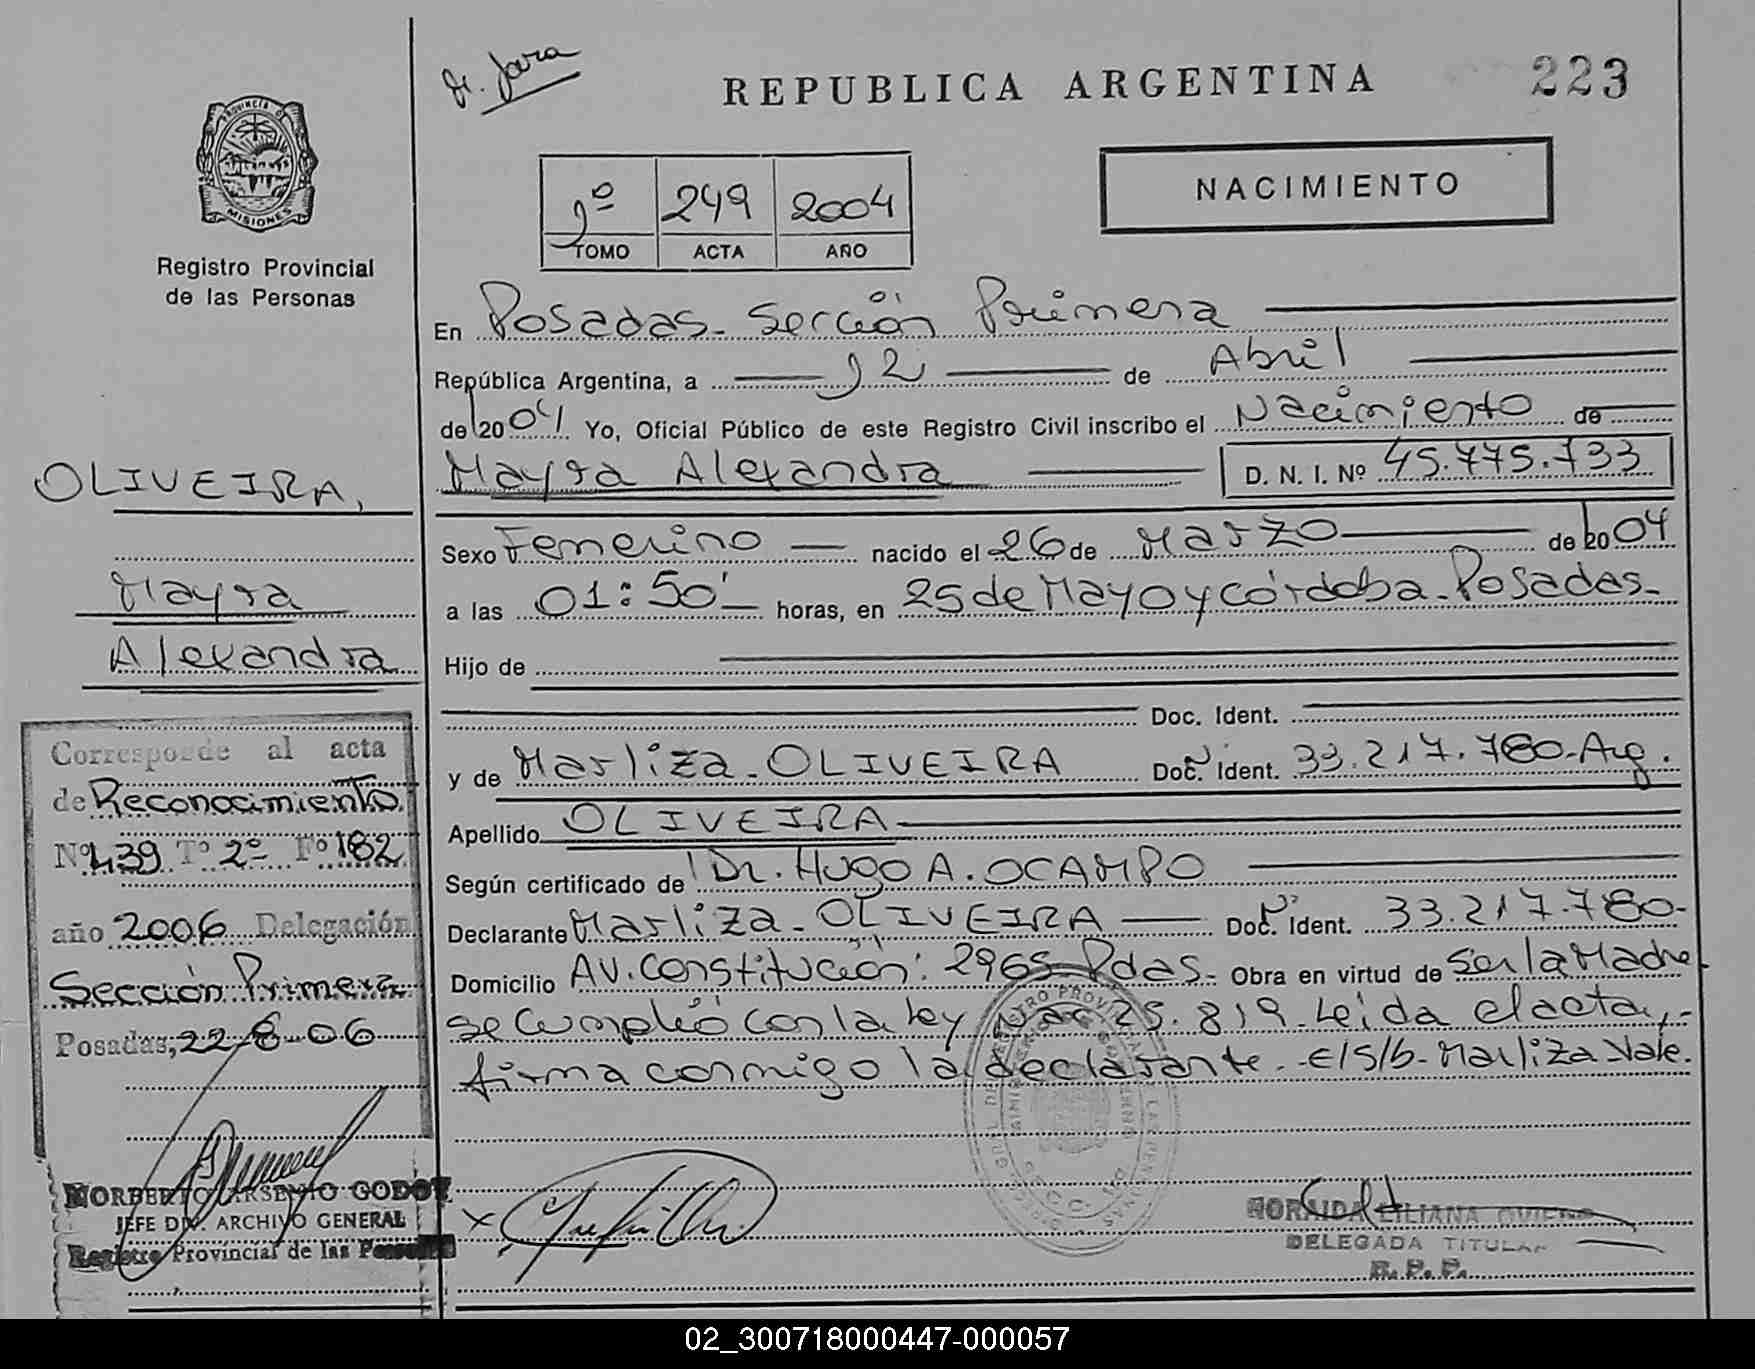 Dr. Jara
REPUBLICA ARGENTINA
223
PROVINCIA DE
MISIONES
Registro Provincial
de las Personas
1º 249 2004
TOMO ACTA AÑO
NACIMIENTO
En Posadas. Sección Primera
República Argentina, a 12 de Abril
de 2004 Yo, Oficial Público de este Registro Civil inscribo el Nacimiento de
Mayra Alexandra D. N. I. Nº 45.775.733
Sexo Femenino nacido el 26 de Marzo de 2004
a las 01:50' horas, en 25 de Mayo y Córdoba. Posadas.
Hijo de
Doc. Ident.
y de Marliza. OLIVEIRA Doc. Ident. 33.217.780. Arg.
Apellido OLIVEIRA
Según certificado de Dr. Hugo A. OCAMPO
Declarante Marliza. OLIVEIRA Doc. Ident. 33.217.780.
Domicilio AV. Constitución: 2965 Pdas. Obra en virtud de Ser la Madre
se cumplió con la ley Nac 25.819. Leída el acta,
firma conmigo la declarante. E/S/b. Marliza Vale.
OLIVEIRA,
Mayra
Alexandra
Corresponde al acta
de Reconocimiento
Nº 439 Tº 2º Fº 182
año 2006 Delegación
Sección Primera
Posadas, 22-6-06
NORBERTO ARSENIO GODOY
JEFE DIV. ARCHIVO GENERAL
Registro Provincial de las Personas
X
LILIANA
DELEGADA TITULAR
R.P.P.
02_300718000447-000057